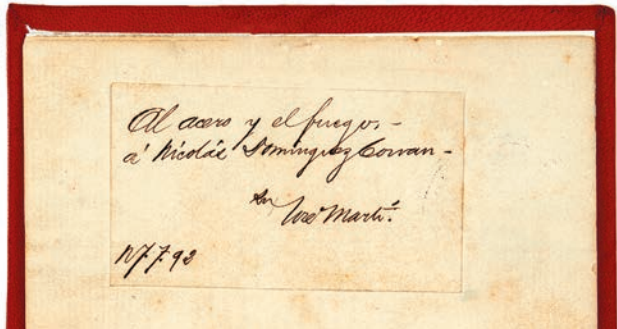 Al acero y el fuego,-
á Nicolás Dominguez Cowan-
su
José Martí.
N.Y. 7. 92